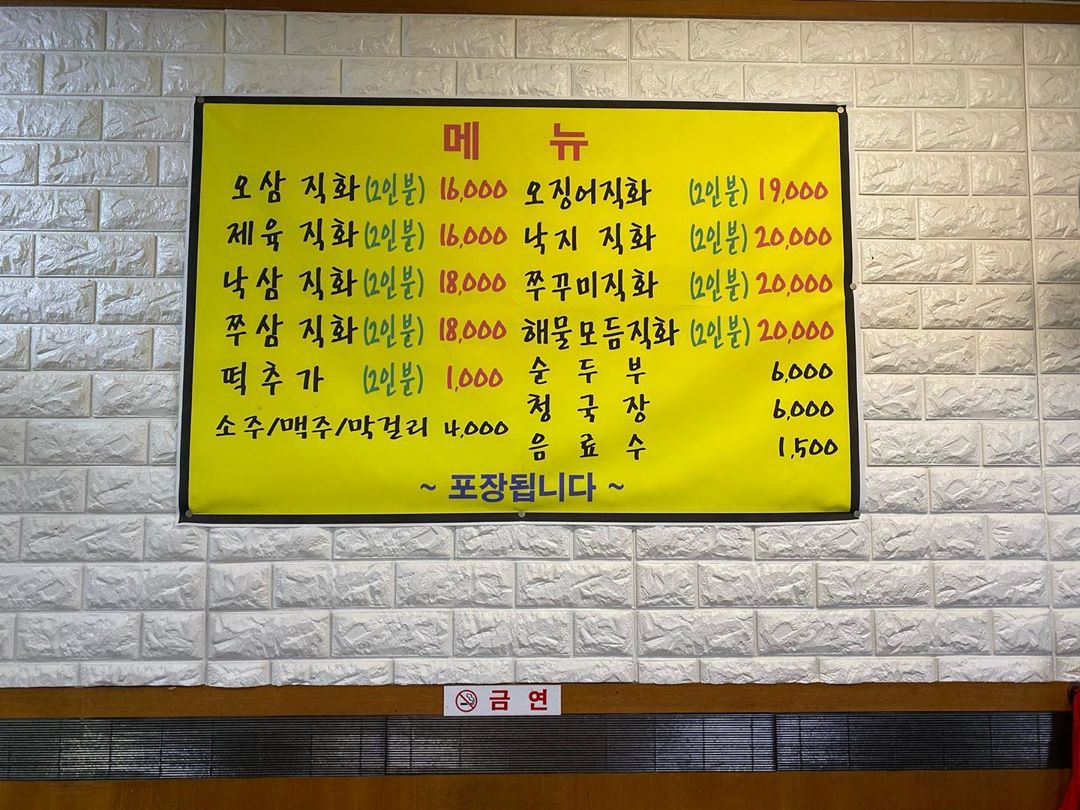 메 뉴
오삼 직화 (2인분) 16,000
제육 직화 (2인분) 16,000
낙삼 직화 (2인분) 18,000
쭈삼 직화 (2인분) 18,000
떡추가 (2인분) 1,000
소주/맥주/막걸리 4,000
오징어직화 (2인분) 19,000
낙지 직화 (2인분) 20,000
쭈꾸미직화 (2인분) 20,000
해물모듬직화 (2인분) 20,000
순 두 부 6,000
청 국 장 6,000
음 료 수 1,500
~ 포장됩니다 ~
금 연